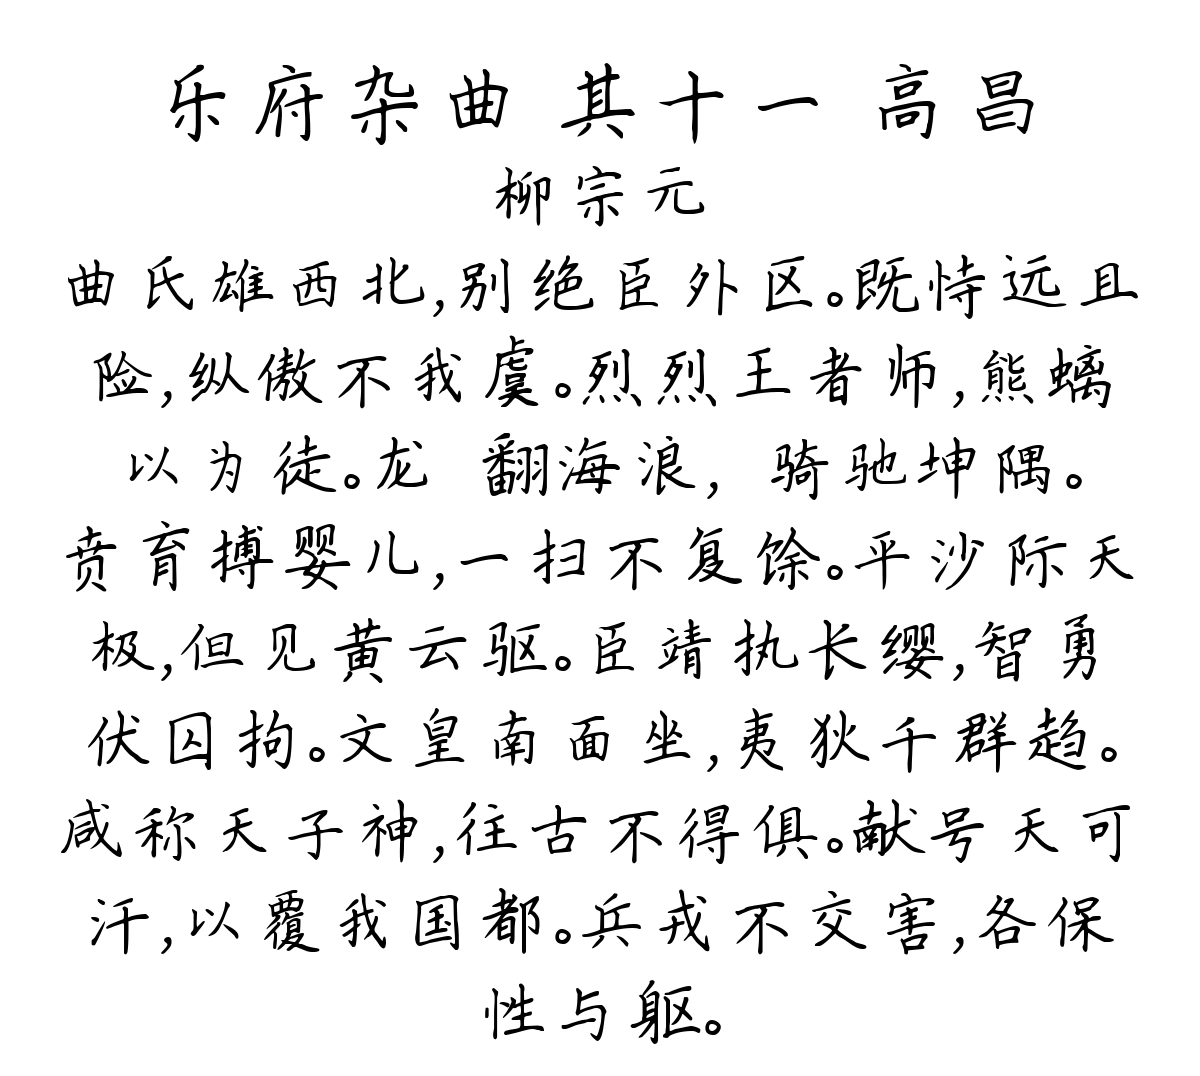 乐府杂曲 其十一 高昌
柳宗元
曲氏雄西北,别绝臣外区。既恃远且
险,纵傲不我虞。烈烈王者师,熊螭
以为徒。龙 翻海浪, 骑驰坤隅。
贲育搏婴儿,一扫不复馀。平沙际天
极,但见黄云驱。臣靖执长缨,智勇
伏囚拘。文皇南面坐,夷狄千群趋。
咸称天子神,往古不得俱。献号天可
汗,以覆我国都。兵戎不交害,各保
性与躯。